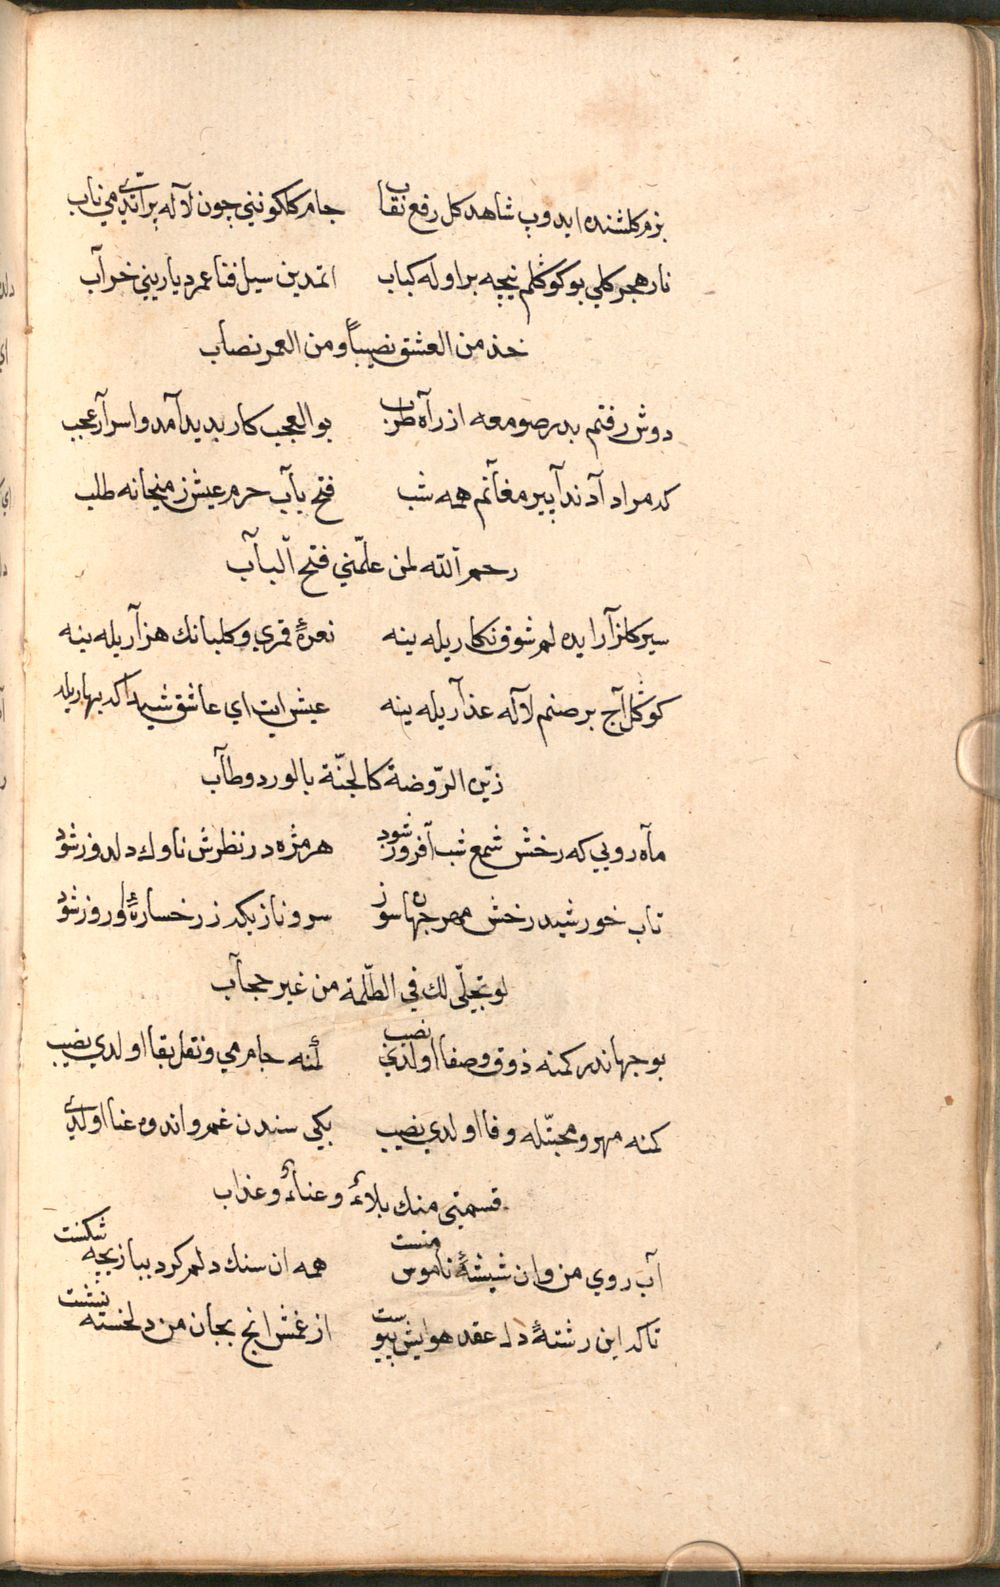 بزم كلشنده ايدوب شاهد كل رفع نقاب جام كلكونني چون لاله پر اتدي مي ناب
نار هجر كلي بو كوڭلم نيچه بر اوله كباب اتمدين سيل فنا عمر ديارينى خراب
خذ من العشق نصيباً ومن العمر نصاب
دوش رفتم بدر صومعه از راه طرب بو العجب كار بديد آمد و اسرار عجب
كه مراد آد ندا پير مغانم همه شب فتح باب حرم عيش ز ميخانه طلب
رحم الله لمن علّمني فتح الباب
سير كلزار ايده لم شوق نكاريله ينه نعرۀ قمري و كلبانك هزاريله ينه
كوڭل آج بر صنم لاله عذاريله ينه عيش ايت اي عاشق شيدا كه بهاريله
زيّن الرّوضة كالجنّة بالورد وطاب
ماه رويي كه رخش شمع شب آفروز شود هر مژه در نظرش ناوك دلدوز شود
تاب خورشيد رخش مهر جهانسوز شود سرو ناز بكدز رخسارۀ او روز شود
لو تجلّى لك في الظّلمة من غير حجاب
بو جهاندر كمنه ذوق و صفا اولدي نصيب كمنه جام مي و نقل بقا اولدي نصيب
كمنه مهر و محبتّله وفا اولدي نصيب بكي سندن غم و اندوه عنا اولدي
قسمتي منك بلاءٌ وعناءٌ وعذاب
آب روي من و ان شيشۀ ناموس منست همه ان سنك دلم كرد ببازيچه شكست
تاكه اين رشتۀ دل عقد هوايش پيوست از غمش انچ بجان من دلخسته نشست